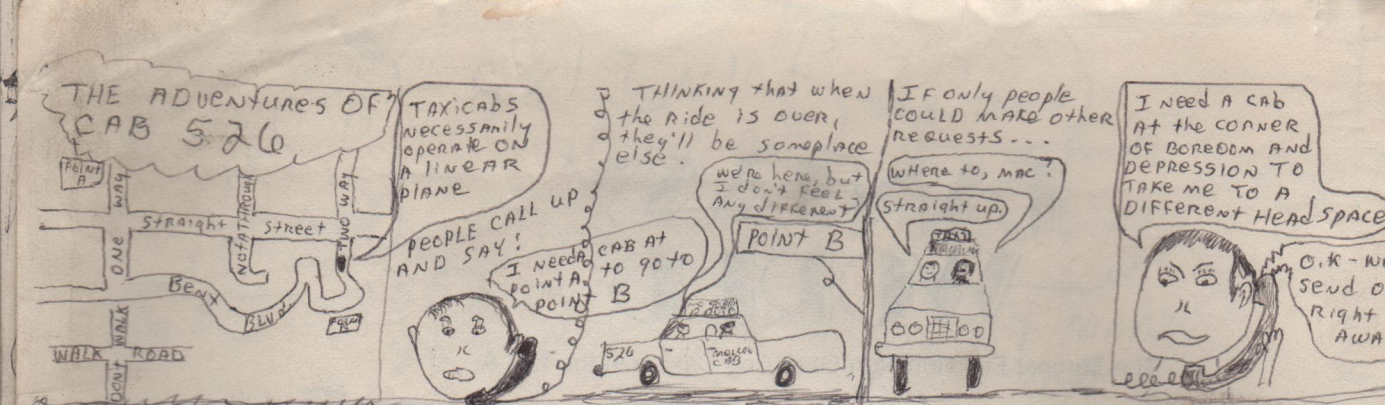 THE ADVENTURES OF
CAB 526
POINT
A
ONE WAY
STRAIGHT STREET
NOTATHROUGH
TWO WAY
BENT
BLVD
WALK ROAD
DONT WALK
TAXICABS
NECESSARILY
OPERATE ON
A LINEAR
PLANE
PEOPLE CALL UP
AND SAY!
I NEED A CAB AT
POINT A TO GO TO
POINT B
THINKING that when
the RIDE IS OVER,
they'll be someplace
else.
We're here, but
I DON'T FEEL
ANY DIFFERENT
POINT B
526
CAB
IF ONLY people
COULD MAKE other
REQUESTS...
WHERE TO, MAC?
STRAIGHT UP.
TAXI
I NEED A CAB
AT the CORNER
OF BOREDOM AND
DEPRESSION TO
TAKE ME TO A
DIFFERENT HEADSPACE
O.K-
SEND
RIGHT
AWA